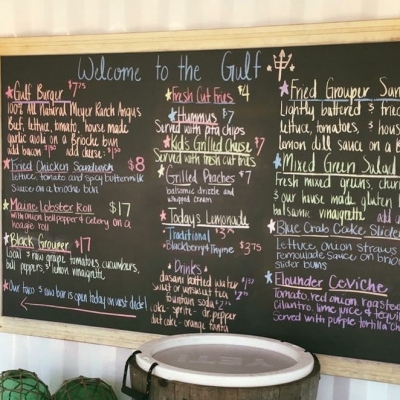 Welcome to the Gulf
Gulf Burger $7.75
100% All Natural Meyer Ranch Angus
Beef, lettuce, tomato, house made
garlic aioli on a Brioche bun
add bacon: $1.50 add cheese: $.50
Fried Chicken Sandwich $8
lettuce, tomato and spicy buttermilk
Sauce on a brioche bun
Maine Lobster Roll $17
with onion bell pepper & celery on a
Rougie roll
Black Grouper $17
Local & raw grape tomatoes, cucumbers,
bell peppers & lemon vinaigrette
Our taco & raw bar is open today on west deck!
Fresh Cut Fries $4
Hummus $7
Served with pita chips
Kids Grilled Cheese $7
Served with fresh cut fries
Grilled Peaches $7
balsamic drizzle and
whipped cream
Today's Lemonade
Traditional $3
Blackberry & Thyme $3.75
Drinks
dasani bottled water
sweet or unsweet tea
fountain soda
coke - sprite - dr. pepper
diet coke - orange fanta
Fried Grouper San
Lightly battered & fried
lettuce, tomatoes, & hous
lemon dill sauce on a b
Mixed Green Salad
Fresh mixed greens, chur
& our house made gluten
balsamic vinaigrette add
Blue Crab Cookie Slider
Lettuce, onion straws
remoulade sauce on brio
slider buns
Flounder Ceviche
Tomato, red onion, roasted
cilantro, lime juice & tequil
Served with purple tortilla chi